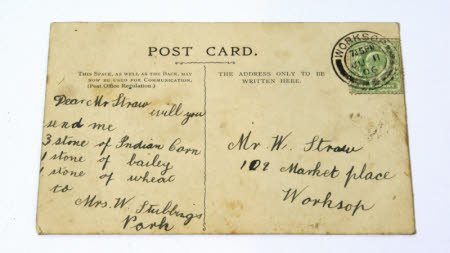 POST CARD.
THIS SPACE, AS WELL AS THE BACK, MAY
NOW BE USED FOR COMMUNICATION.
(Post Office Regulation.)
THE ADDRESS ONLY TO BE
WRITTEN HERE.
WORKSOP
06
Dear Mr Straw
will you
send me
3 stone of Indian Corn
1 stone of bailey
1 stone of wheat
to
Mrs. W. Stubbings
Park
Mr W. Straw
102 Market place
Worksop